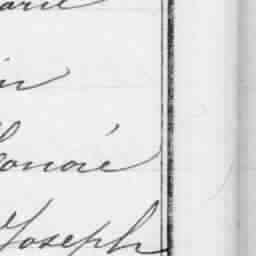 arie
in
onoré
Joseph